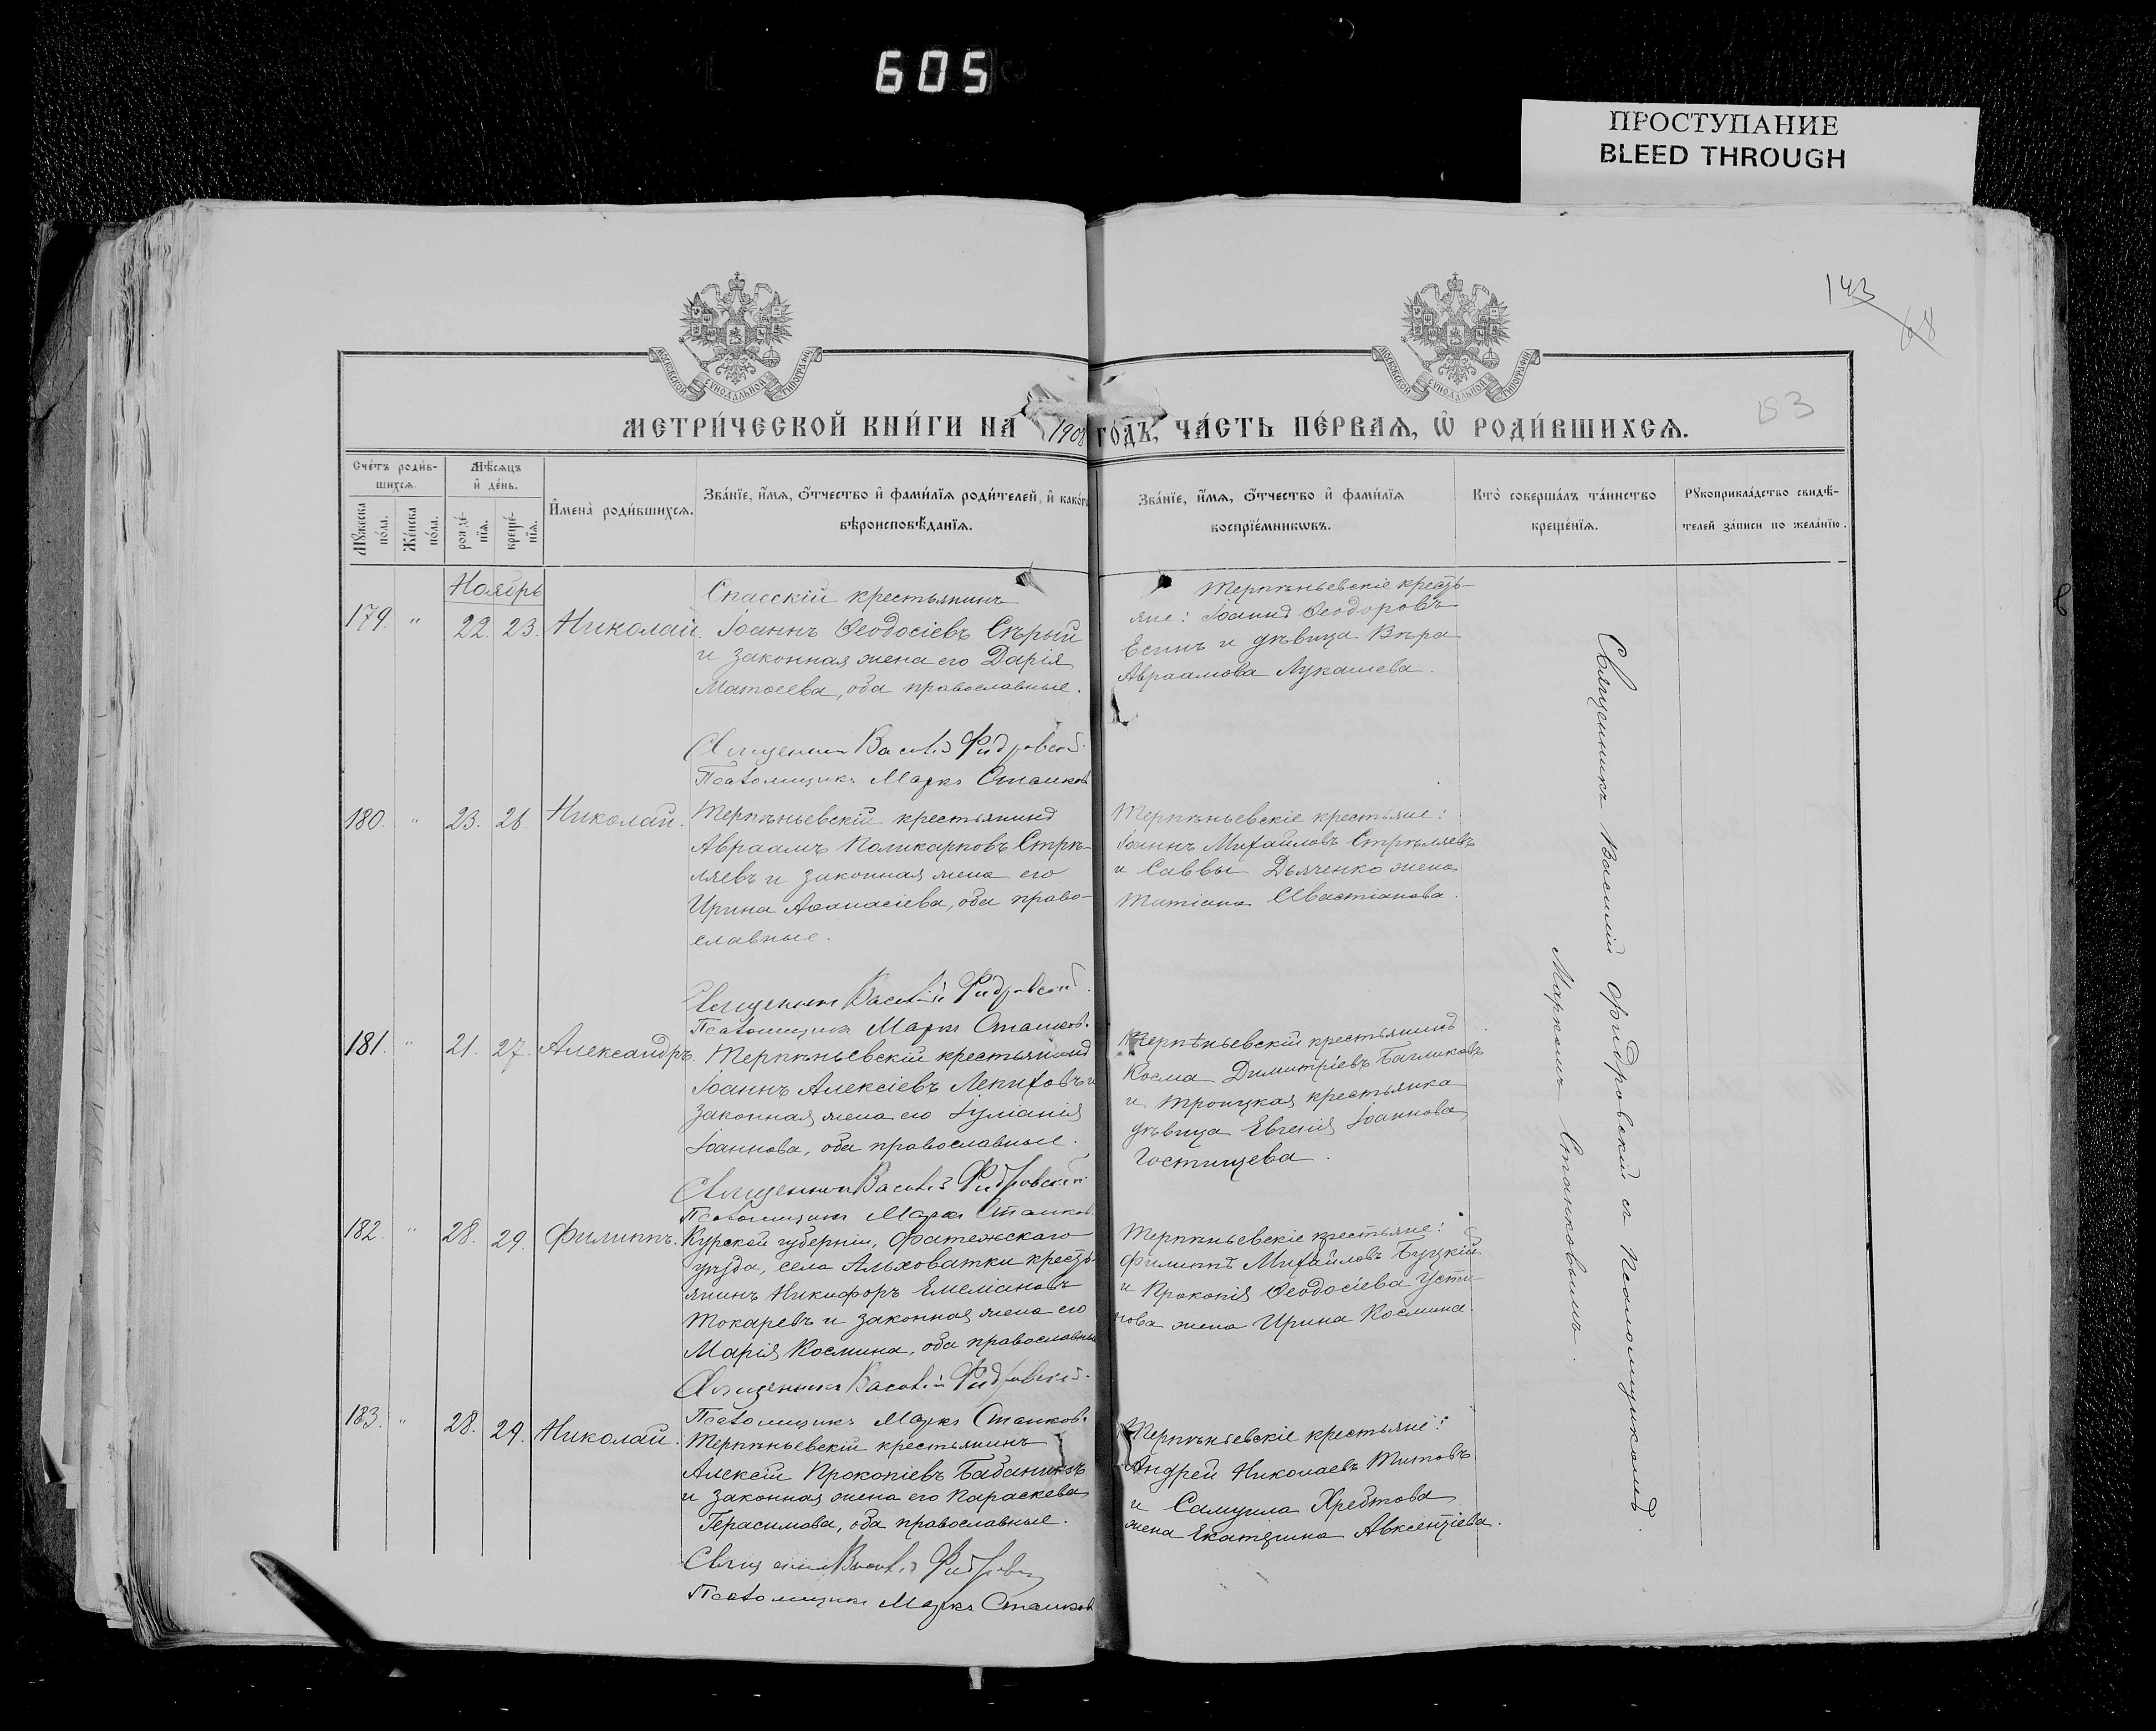 605
ПРОСТУПАНИЕ
BLEED THROUGH
143
68
153
МОСКОВСКОЙ СУНОДАЛЬНОЙ ТИПОГРАФИИ
МОСКОВСКОЙ СУНОДАЛЬНОЙ ТИПОГРАФИИ
МЕТРИ́ЧЕСКОЙ КНИ́ГИ НА 1908 ГОДЪ, ЧА́СТЬ ПЕ́РВАѦ, Ѡ РОДИ́ВШИХСѦ.
Сче́тъ роди́в-
шихсѧ.
Мꙋ́жеска по́ла.
Же́нска по́ла.
Мѣ́сѧцъ
и де́нь.
рожде́-нїѧ.
креще́-нїѧ.
Имена̀ роди́вшихсѧ.
Зва́нїе, и́мѧ, о́тчество и фами́лїѧ роди́телей, и како́гѡ
вѣроисповѣ́данїѧ.
Зва́нїе, и́мѧ, о́тчество и фами́лїѧ
воспрїе́мникѡвъ.
Кто̀ соверша́лъ та́инство
креще́нїѧ.
Рꙋкоприкла́дство свидѣ́-
телей за́писи по жела́нїю.
Ноябрь
179. " 22. 23. Николай.
Спасскій крестьянинъ
Іоаннъ Ѳеодосіевъ Сѣрый
и законная жена его Дарія
Матѳеева, оба православные.
Священникъ Василій Фидровскій.
Псаломщикъ Маркъ Станков
Терпѣньевскіе кресть-
яне: Іоаннъ Ѳеодоровъ
Есинъ и дѣвица Вѣра
Авраамова Лукашева.
180. " 23. 26. Николай.
Терпѣньевскій крестьянинъ
Авраамъ Поликарповъ Стрѣ-
ляевъ и законная жена его
Ирина Аѳанасіева, оба право-
славные.
Священникъ Василій Фидровскій.
Псаломщикъ Маркъ Станков.
Терпѣньевскіе крестьяне:
Іоаннъ Михайловъ Стрѣляевъ
и Саввы Дьяченко жена
Татіана Савастіанова.
181. " 21. 27. Александръ.
Терпѣньевскій крестьянинъ
Іоаннъ Алексіевъ Лепиховъ и
законная жена его Іуліанія
Іоаннова, оба православные.
Священникъ Василій Фидровскій
Псаломщикъ Маркъ Станков
Терпѣньевскій крестьянинъ
Косма Димитріевъ Багликовъ
и троицкая крестьянка
дѣвица Евгенія Іоаннова
Гостищева.
182. " 28. 29. Филиппъ.
Курской губерніи, Фатежскаго
уѣзда, села Альховатки кресть-
янинъ Никифоръ Емеліановъ
Токаревъ и законная жена его
Марія Космина, оба православные
Священникъ Василій Фидровскій.
Псаломщикъ Маркъ Станков.
Терпѣньевскіе крестьяне:
Филиппъ Михайловъ Буцкій
и Прокопія Ѳеодосіева Усти-
нова жена Ирина Космина.
183. " 28. 29. Николай.
Терпѣньевскій крестьянинъ
Алексій Прокопіевъ Бабанинъ
и законная жена его Параскева
Герасимова, оба православные.
Священникъ Василій Фидровскій
Псаломщикъ Маркъ Станков
Терпѣньевскіе крестьяне:
Андрей Николаевъ Титовъ
и Самуила Хребтова
жена Екатерина Авксентіева.
Священникъ Василій Фидровскій съ псаломщикомъ
Маркомъ Станковымъ.